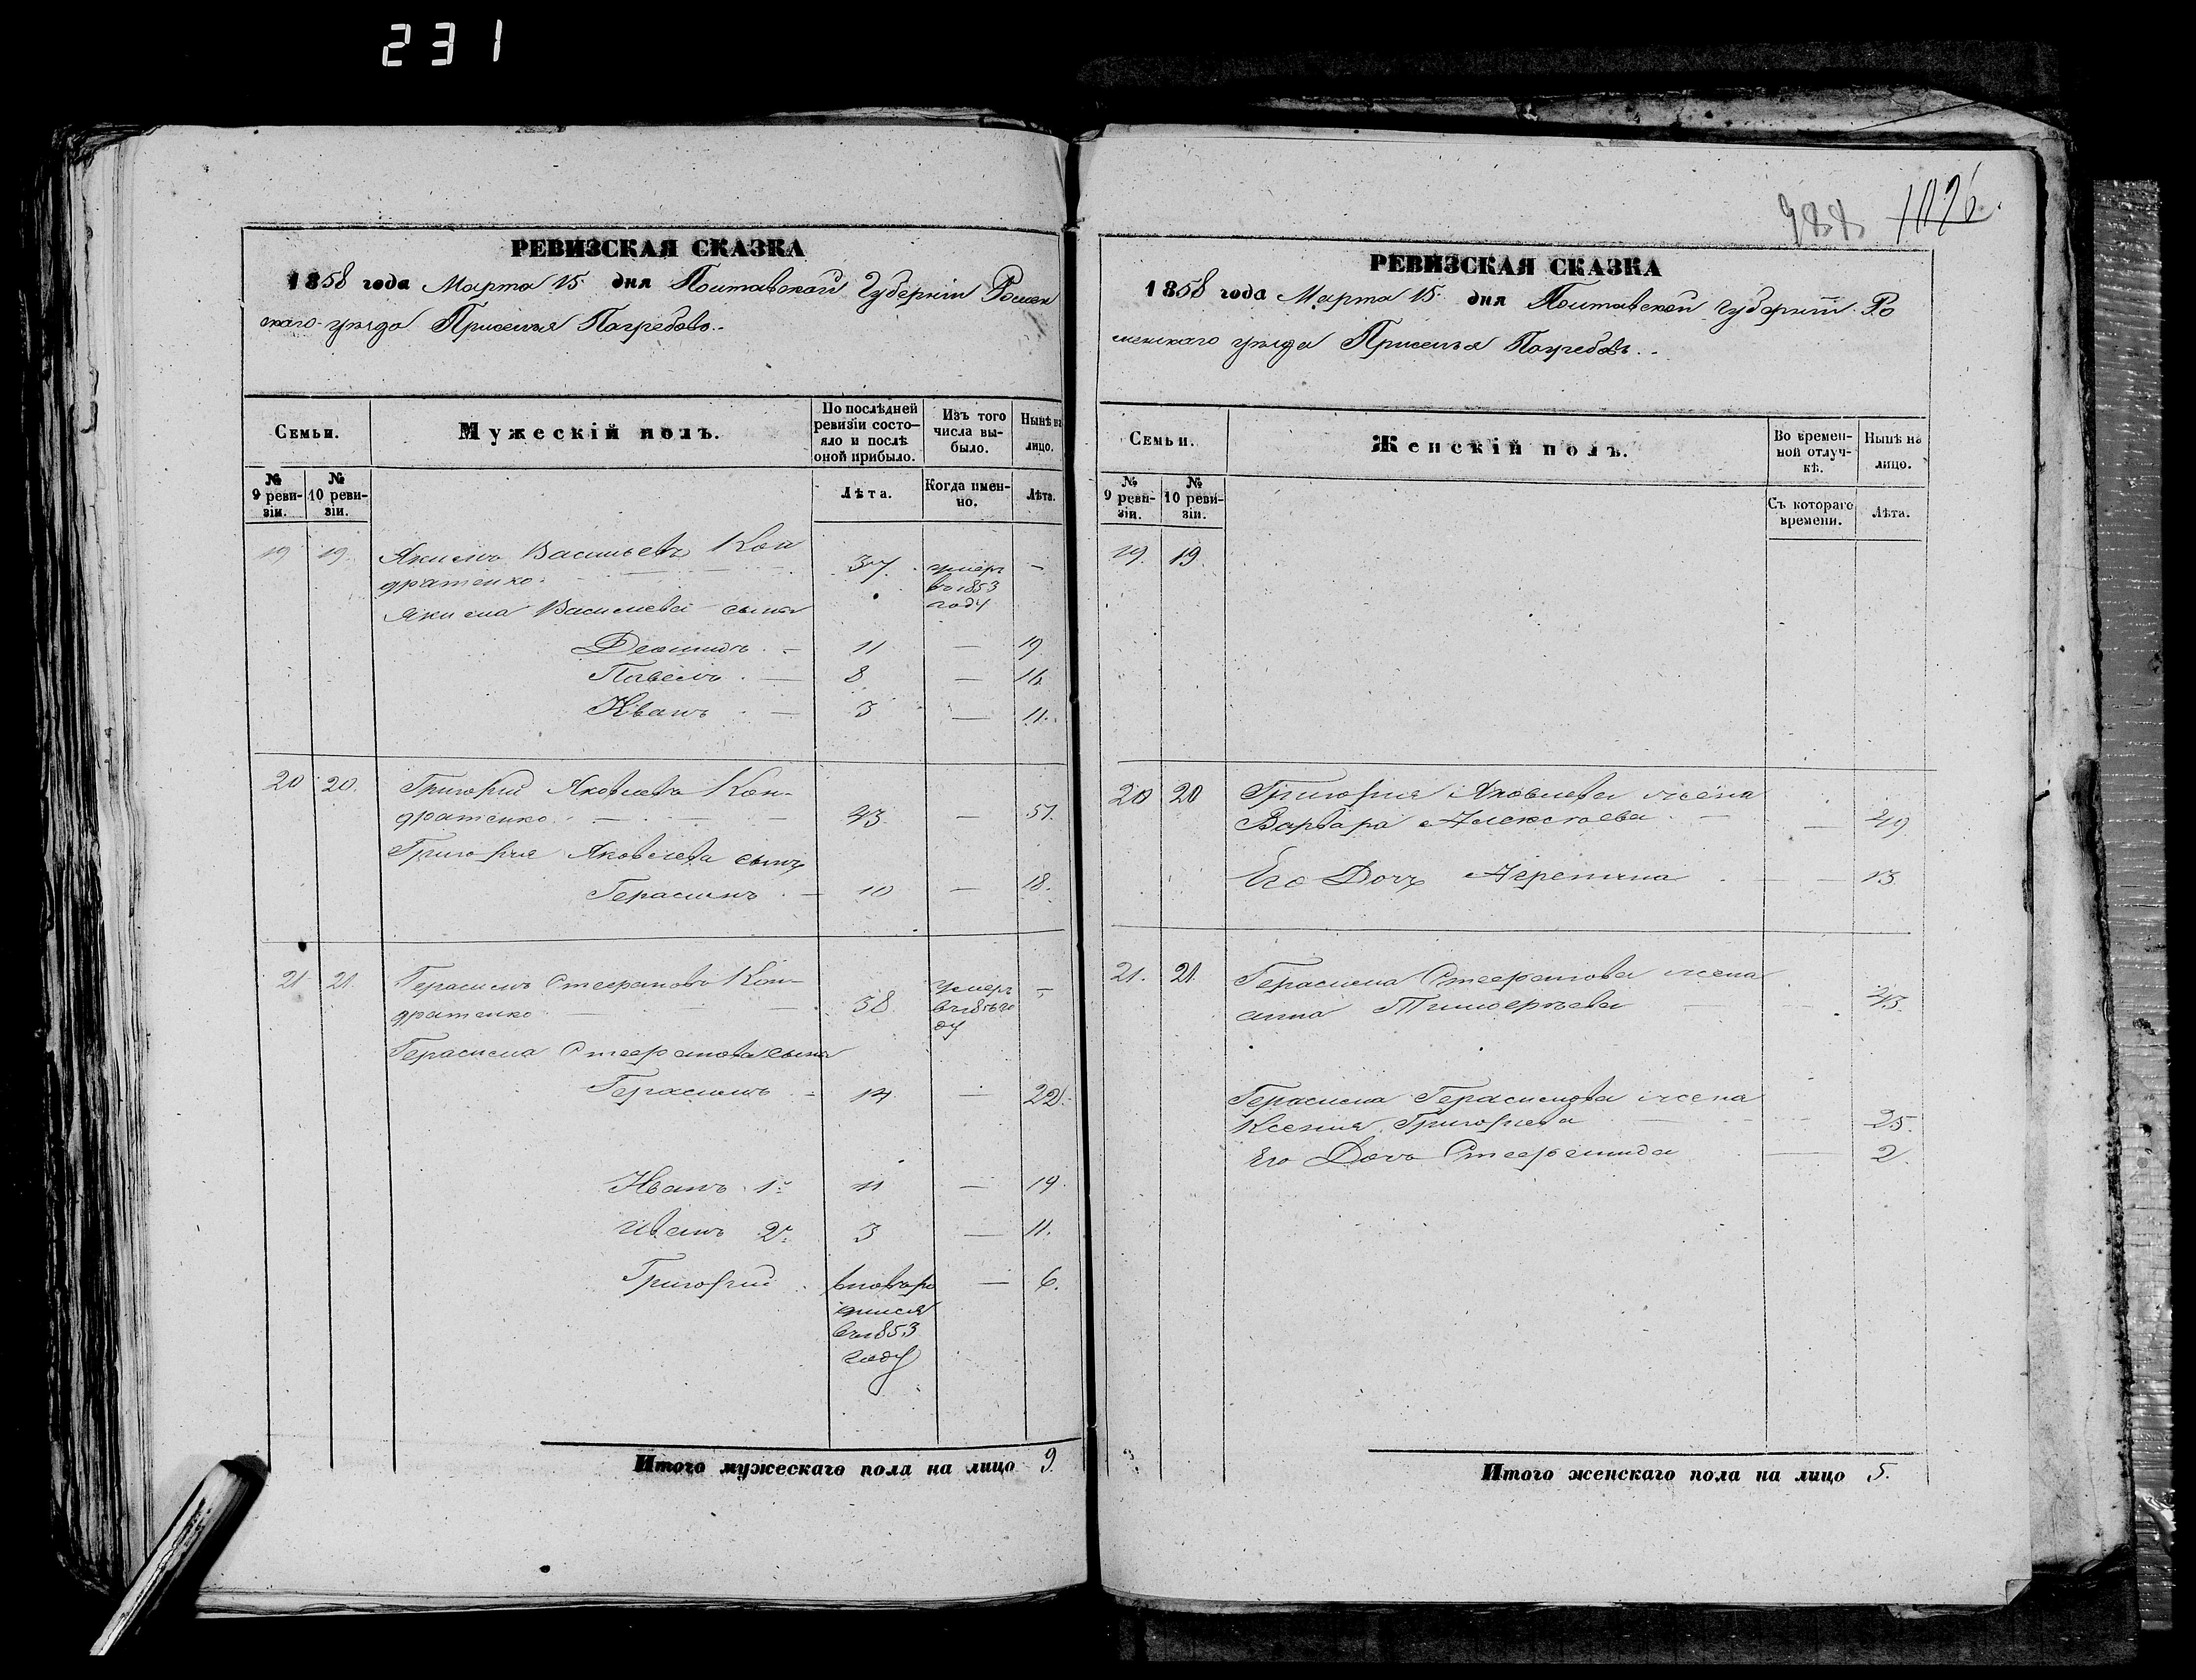 231
РЕВИЗСКАЯ СКАЗКА
1858 года Марта 15 дня Полтавской Губерніи Ромен
скаго уѣзда Приселья Погребовъ.
Семьи.
Мужескій полъ.
По послѣдней ревизіи состо-
яло и послѣ
оной прибыло.
Изъ того
числа вы-
было.
Нынѣ на
лицо.
№ 9 реви-
зіи.
№ 10 реви-
зіи.
Лѣта.
Когда имен-
но.
Лѣта.
19 19. Якимъ Васильевъ Кон
дратенко. 37. умеръ въ 1853 году —
Якима Васильева сыны
— 11 — 19
Павелъ. — 8 — 16
Иванъ — 3 — 11.
20 20. Григорій Яковлевъ Кон-
дратенко. 43 — 51.
Григорія Яковлева сынъ
Герасимъ — 10 — 18.
21 21. Герасимъ Стефановъ Кон-
дратенко 38 умеръ го
ду —
Герасима Стефанова сыны
Герасимъ — 14 — 22.
Иванъ 1й 11 — 19.
Иванъ 2й 3 — 11.
Григорій вновь ро
дился
въ 1853
году — 6.
Итого мужескаго пола на лицо 9.
988 1026.
РЕВИЗСКАЯ СКАЗКА
1858 года Марта 15 дня Полтавской губерніи Ро
менскаго уѣзда Приселья Погребовъ.
Семьи.
Женскій полъ.
Во времен-
ной отлуч-
кѣ.
Нынѣ на
лицо.
№ 9 реви-
зіи.
№ 10 реви-
зіи.
Съ котораго
времени.
Лѣта.
19. 19.
20 20 Григорія Яковлева жена
Варвара Алексѣева — 49
Его Дочь — 13
21. 21. Герасима Стефанова жена
анна Тимофеева — 43.
Герасима Герасимова жена
Ксенія Григорьева 25.
Его Дочь Стефанида — 2.
Итого женскаго пола на лицо 5.